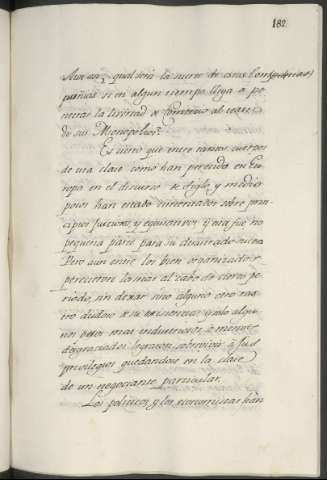 182.
qual será la suerte de estas Com
pañias si en algun tiempo llega a pe
netrar la livertad de Comercio al
de sus Monopolios?
Es cierto que entre tantos cuerpos
de esta clase como han perecido en Eu
ropa en el discurso de siglo, y medio
pocos han estado cimentados sobre prin
cipios Juiciosos, y equitativos y esta fue no
pequeña parte para su desastrado
Pero aun entre los bien organizados
perecieron los mas al cabo de cierto pe
riodo, sin dexar uno alguno otro ras
tro dudoso de su existencia y solo algu
nos pocos mas industriosos, ó menos
desgraciados lograron sobrevivir á sus
privilegios quedandose en la clase
de un negociante particular.
Los politicos, y los economistas han